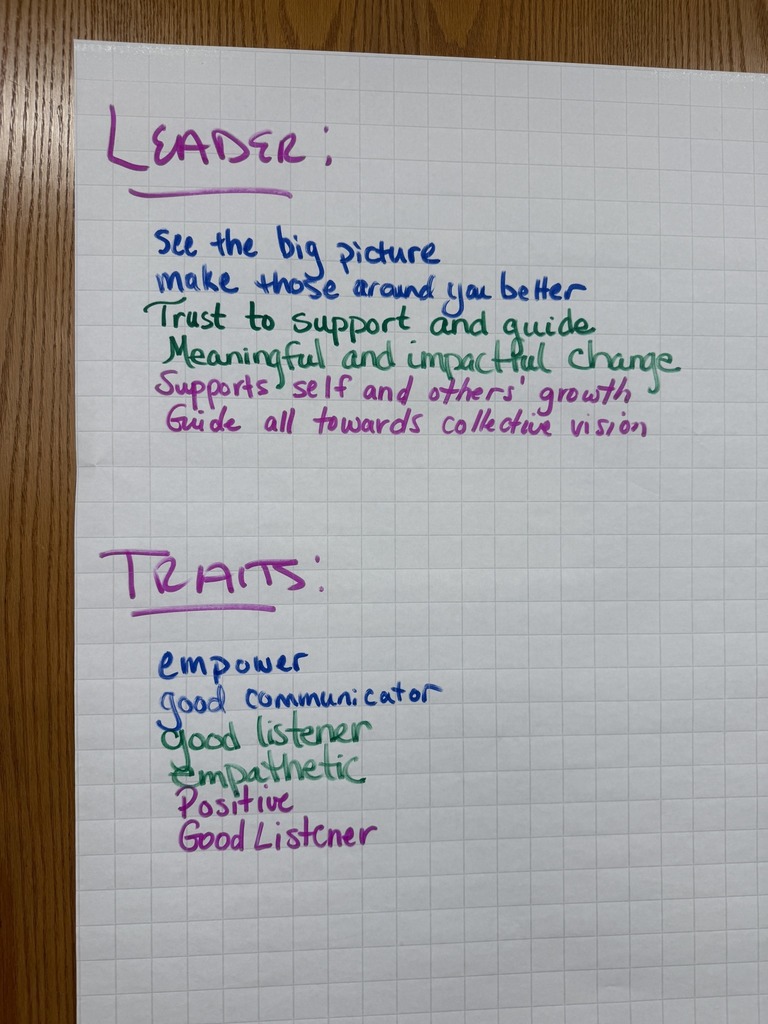 LEADER:
see the big picture
make those around you better
Trust to support and guide
Meaningful and impactful change
Supports self and others' growth
Guide all towards collective vision
TRAITS:
empower
good communicator
good listener
empathetic
Positive
Good Listener